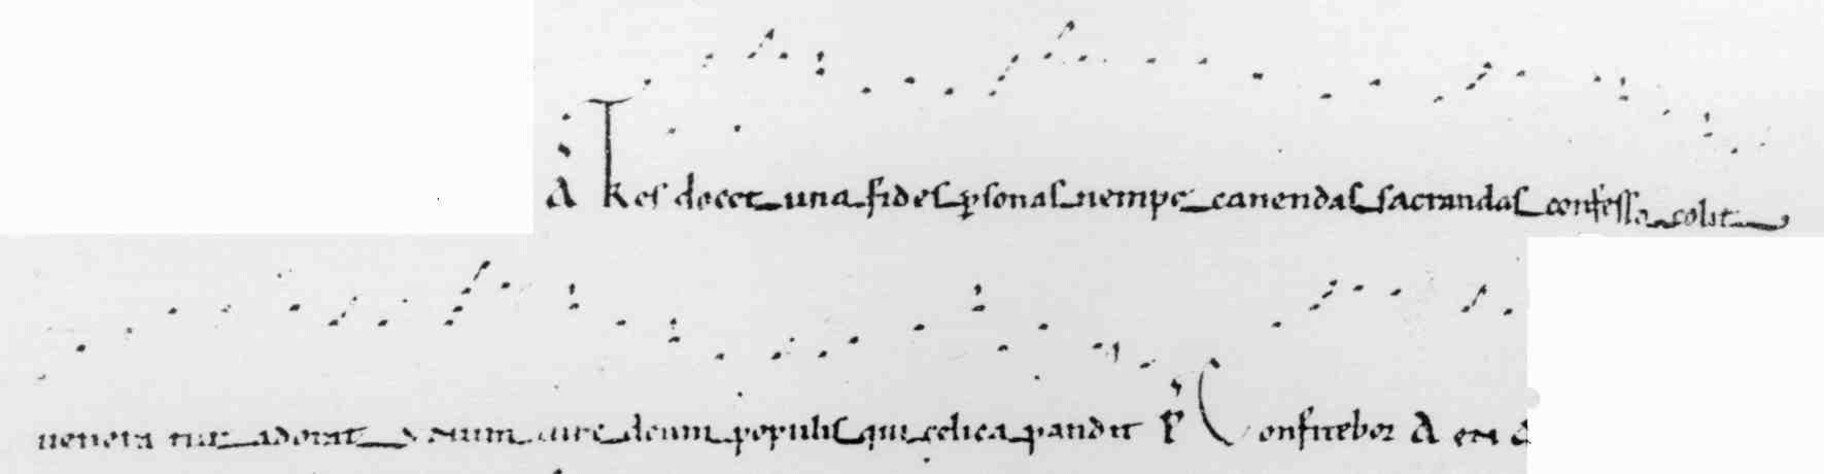 A Tres docet una fides psonas nempe canendas sacrandas confessa colit
ueneratur adorat unum iure deum populis qui celica pandit P Confitebor A